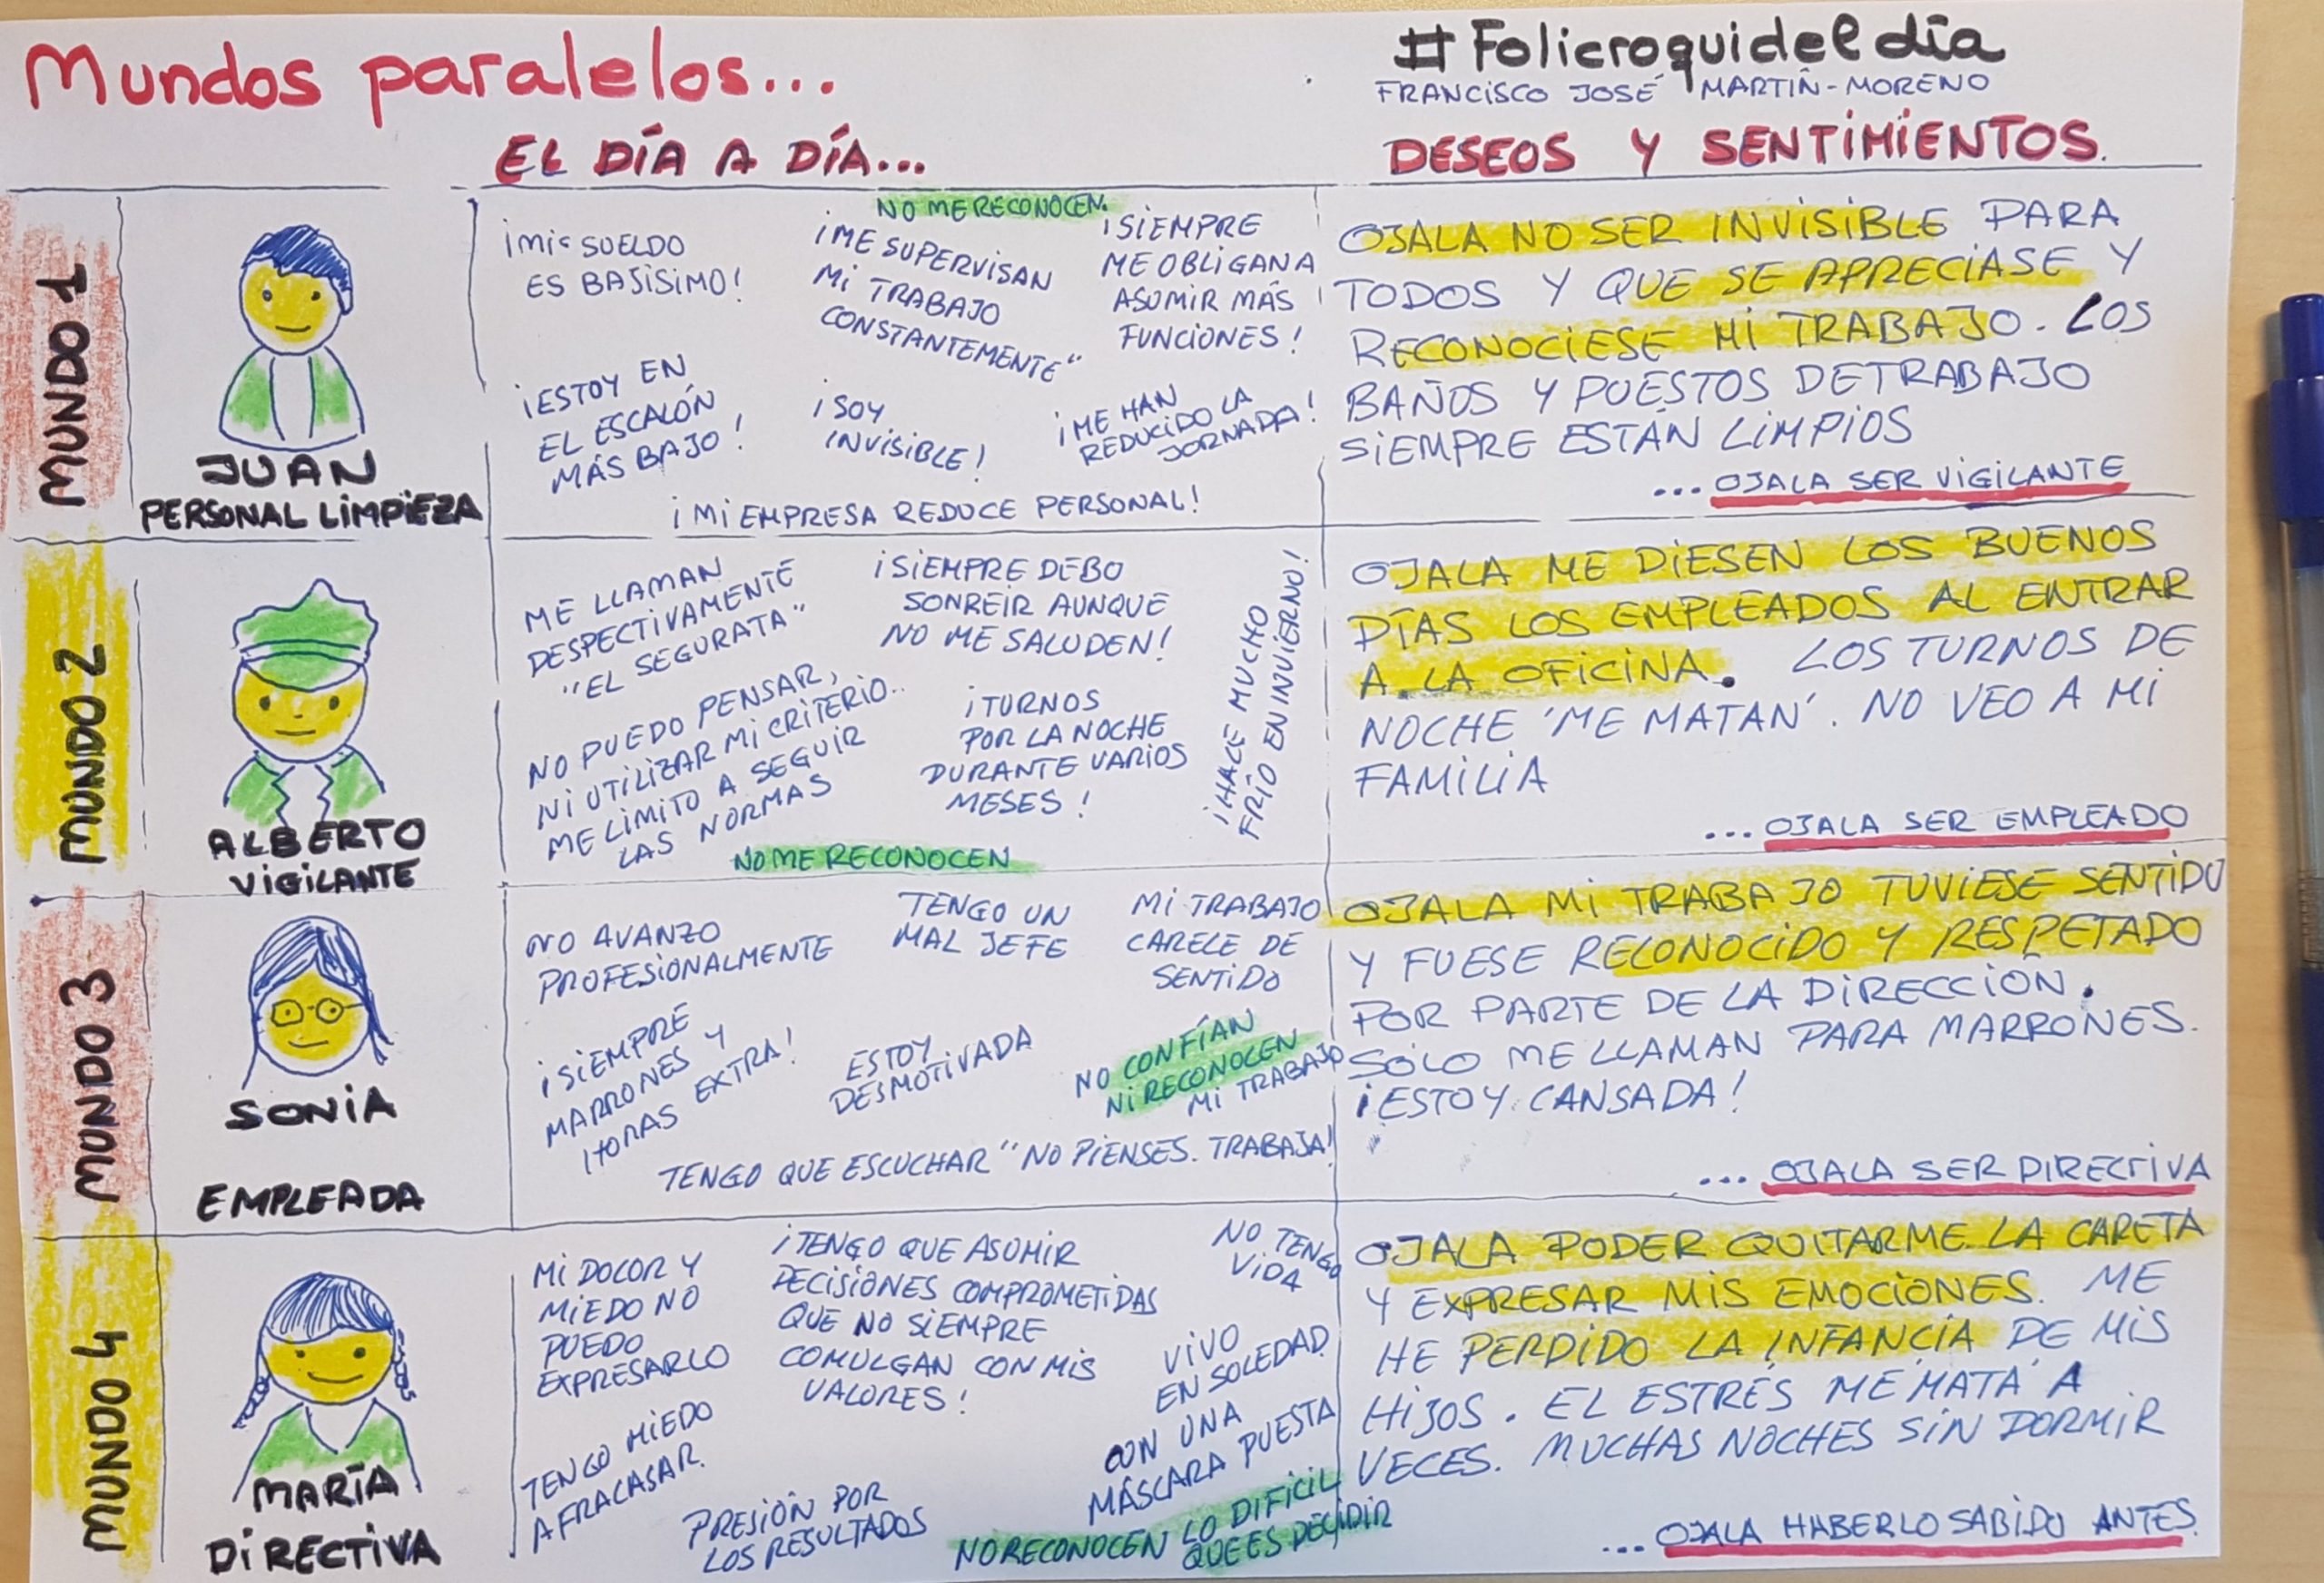 Mundos paralelos...
#Folicroquideldía
FRANCISCO JOSÉ MARTÍN-MORENO
EL DÍA A DÍA...
DESEOS Y SENTIMIENTOS.
MUNDO 1
JUAN
PERSONAL LIMPIEZA
NO ME RECONOCEN.
¡MI SUELDO
ES BAJISIMO!
¡ME SUPERVISAN
MI TRABAJO
CONSTANTEMENTE"
¡SIEMPRE
ME OBLIGAN A
ASUMIR MÁS
FUNCIONES!
¡ESTOY EN
EL ESCALÓN
MÁS BAJO!
¡SOY
INVISIBLE!
¡ME HAN
REDUCIDO LA
JORNADA!
¡MI EMPRESA REDUCE PERSONAL!
OJALA NO SER INVISIBLE PARA
TODOS Y QUE SE APRECIASE Y
RECONOCIESE MI TRABAJO. LOS
BAÑOS Y PUESTOS DE TRABAJO
SIEMPRE ESTÁN LIMPIOS
...OJALA SER VIGILANTE
MUNDO 2
ALBERTO
VIGILANTE
ME LLAMAN
DESPECTIVAMENTE
"EL SEGURATA"
¡SIEMPRE DEBO
SONREIR AUNQUE
NO ME SALUDEN!
NO PUEDO PENSAR,
NI UTILIZAR MI CRITERIO..
ME LIMITO A SEGUIR
LAS NORMAS
¡TURNOS
POR LA NOCHE
DURANTE VARIOS
MESES!
¡HACE MUCHO
FRÍO EN INVIERNO!
NO ME RECONOCEN
OJALA ME DIESEN LOS BUENOS
DÍAS LOS EMPLEADOS AL ENTRAR
A LA OFICINA. LOS TURNOS DE
NOCHE 'ME MATAN'. NO VEO A MI
FAMILIA
...OJALA SER EMPLEADO
MUNDO 3
SONIA
EMPLEADA
NO AVANZO
PROFESIONALMENTE
TENGO UN
MAL JEFE
MI TRABAJO
CARECE DE
SENTIDO
¡SIEMPRE
MARRONES Y
HORAS EXTRA!
ESTOY
DESMOTIVADA
NO CONFÍAN
NI RECONOCEN
MI TRABAJO
TENGO QUE ESCUCHAR "NO PIENSES. TRABAJA!
OJALA MI TRABAJO TUVIESE SENTIDO
Y FUESE RECONOCIDO Y RESPETADO
POR PARTE DE LA DIRECCIÓN.
SOLO ME LLAMAN PARA MARRONES.
¡ESTOY CANSADA!
...OJALA SER DIRECTIVA
MUNDO 4
MARÍA
DIRECTIVA
MI DOLOR Y
MIEDO NO
PUEDO
EXPRESARLO
¡TENGO QUE ASUMIR
DECISIONES COMPROMETIDAS
QUE NO SIEMPRE
COMULGAN CON MIS
VALORES!
NO TENGO
VIDA
VIVO
EN SOLEDAD
CON UNA
MÁSCARA PUESTA
TENGO MIEDO
A FRACASAR.
PRESIÓN POR
LOS RESULTADOS
NO RECONOCEN LO DIFICIL
QUE ES DECIDIR
OJALA PODER QUITARME LA CARETA
Y EXPRESAR MIS EMOCIONES. ME
HE PERDIDO LA INFANCIA DE MIS
HIJOS. EL ESTRÉS ME MATA A
VECES. MUCHAS NOCHES SIN DORMIR
...OJALA HABERLO SABIDO ANTES.